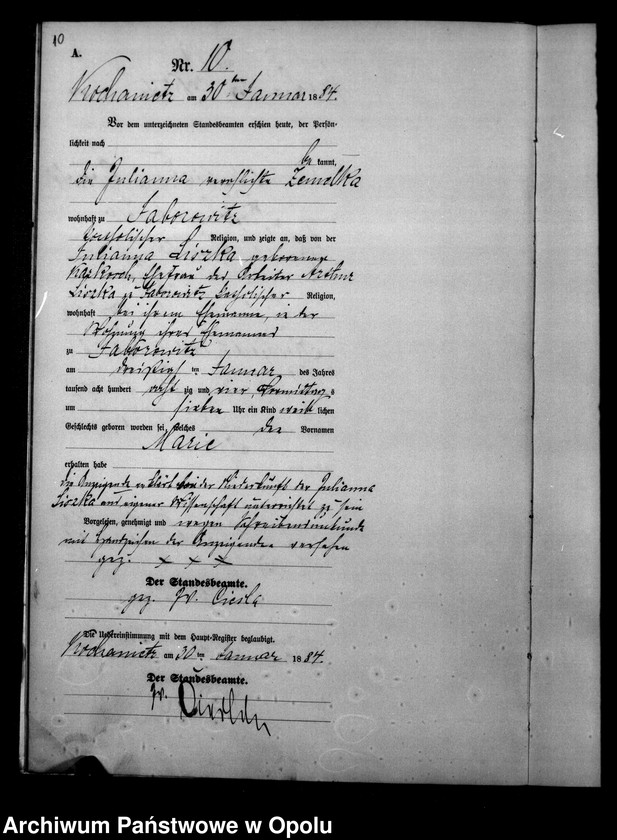 10
A.
Nr. 10.
Kochanietz am 30ten Januar 1884.
Vor dem unterzeichneten Standesbeamten erschien heute, der Persön-
lichkeit nach
be kannt,
die Julianna verehlichte Zemelka
wohnhaft zu Jaborowitz
katholischer Religion, und zeigte an, daß von der
Julianna Liszka geborenen
Ehefrau des Arbeiter Arthur
Liszka zu Jaborowitz katholischer Religion,
wohnhaft bei ihrem Ehemanne, in der
Wohnung ihres Ehemannes
zu Jaborowitz
am dreißigsten Januar des Jahres
tausend acht hundert achtzig und vier Vormittags
um sieben Uhr ein Kind weiblichen
Geschlechts geboren worden sei, welches den Vornamen
Marie
erhalten habe
Die Anzeigende erklärt bei der Niederkunft der Julianna
Liszka aus eigener Wissenschaft unterrichtet zu sein
Vorgelesen, genehmigt und wegen Schreibensunkunde
mit Handzeichen der Anzeigenden versehen
gez. x x x
Der Standesbeamte.
gez. Ciesla
Die Uebereinstimmung mit dem Haupt-Register beglaubigt.
Kochanietz am 30ten Januar 1884.
Der Standesbeamte.
Archiwum Państwowe w Opolu